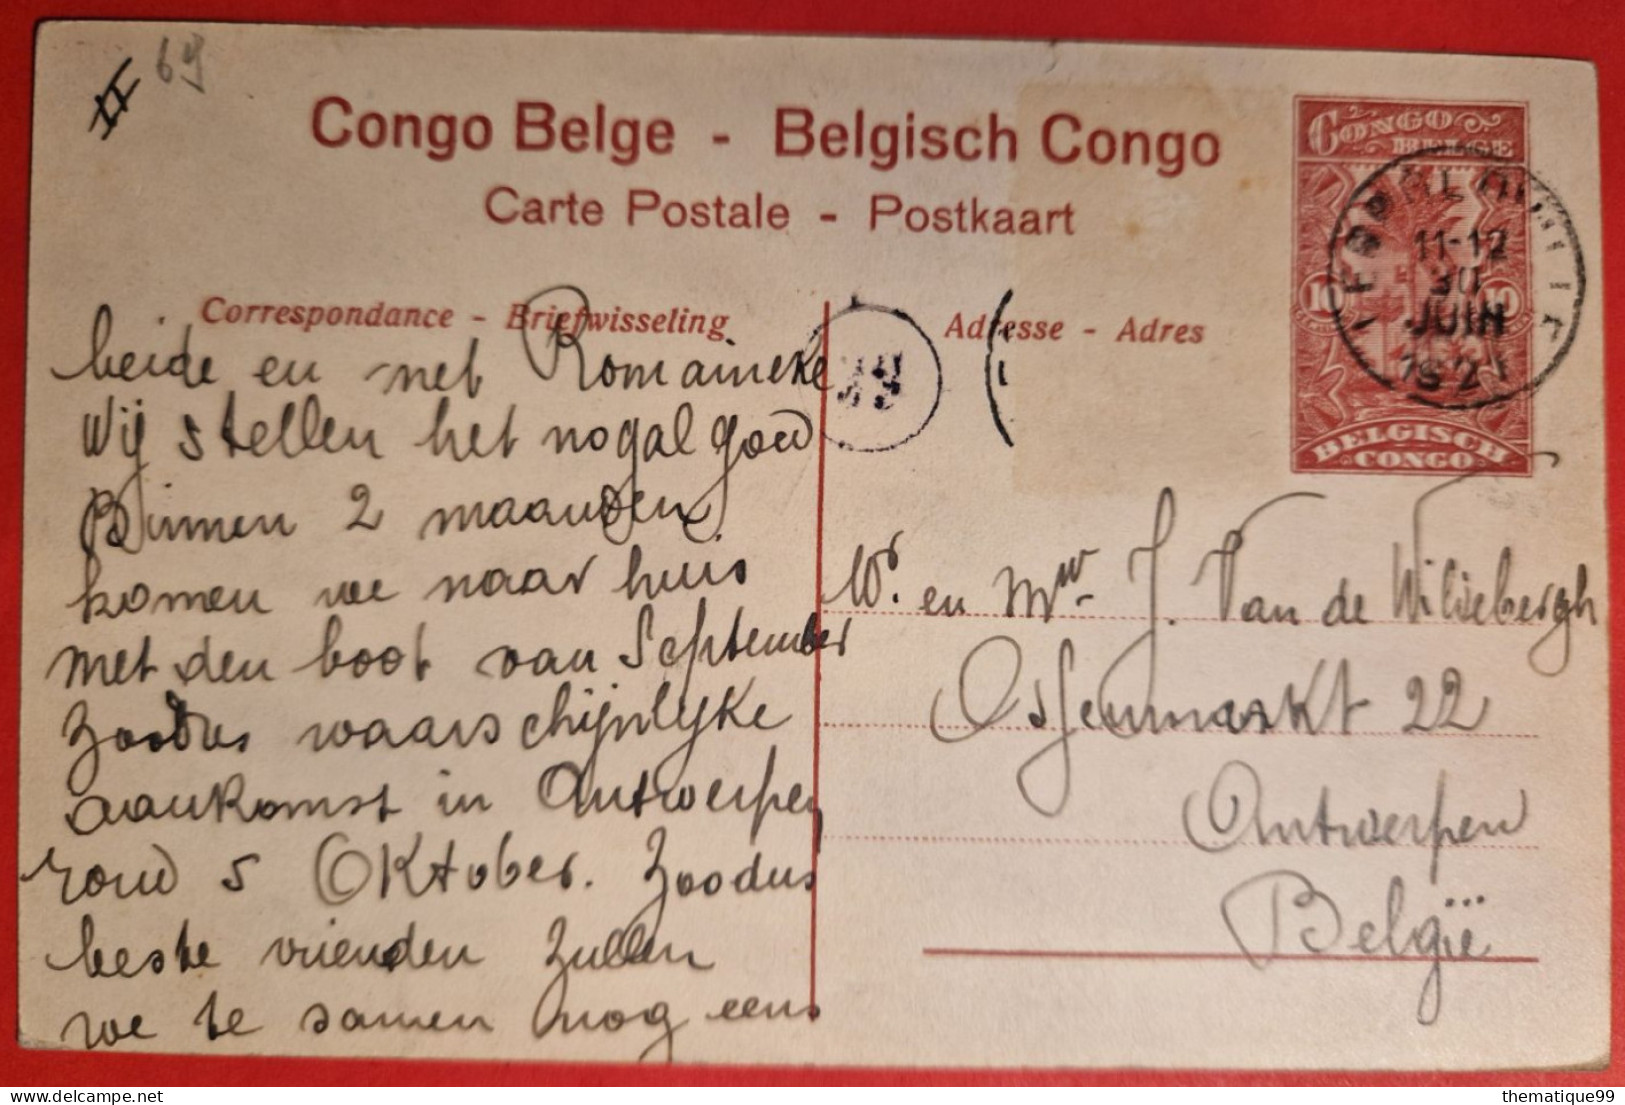 II 69
Congo Belge - Belgisch Congo
Carte Postale - Postkaart
Correspondance - Briefwisseling
Adresse - Adres
CONGO
BELGE
10 10
BELGISCH
CONGO
11-12
30
JUIN
1921
beide en met Romaineke
Wij stellen het nogal goed
Binnen 2 maanden
komen we naar huis
met den boot van September
Zoodus waarschijnlijke
aankomst in Antwerpen
rond 5 Oktober. Zoodus
beste vrienden zullen
we te samen nog eens
Mr. en Mw. J. Van de Wildebergh
Ossenmarkt 22
Antwerpen
België
thematique99